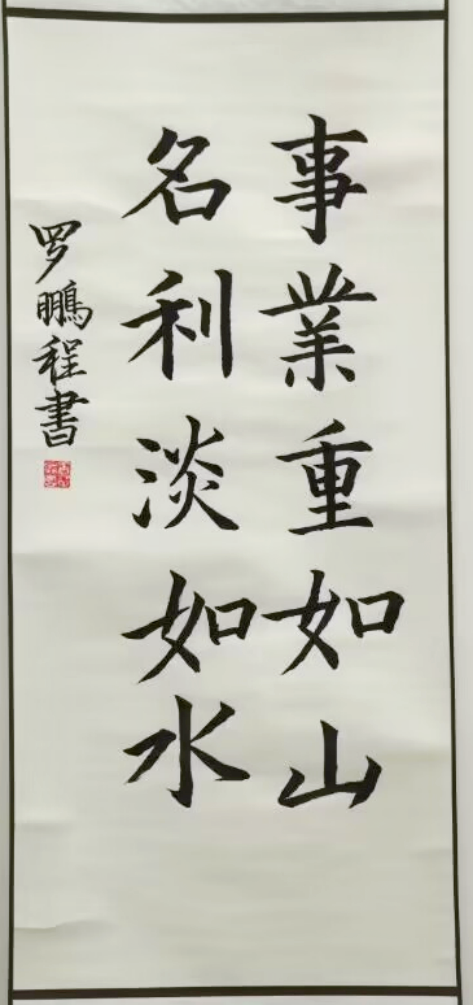 事業重如山
名利淡如水
罗鵬程書